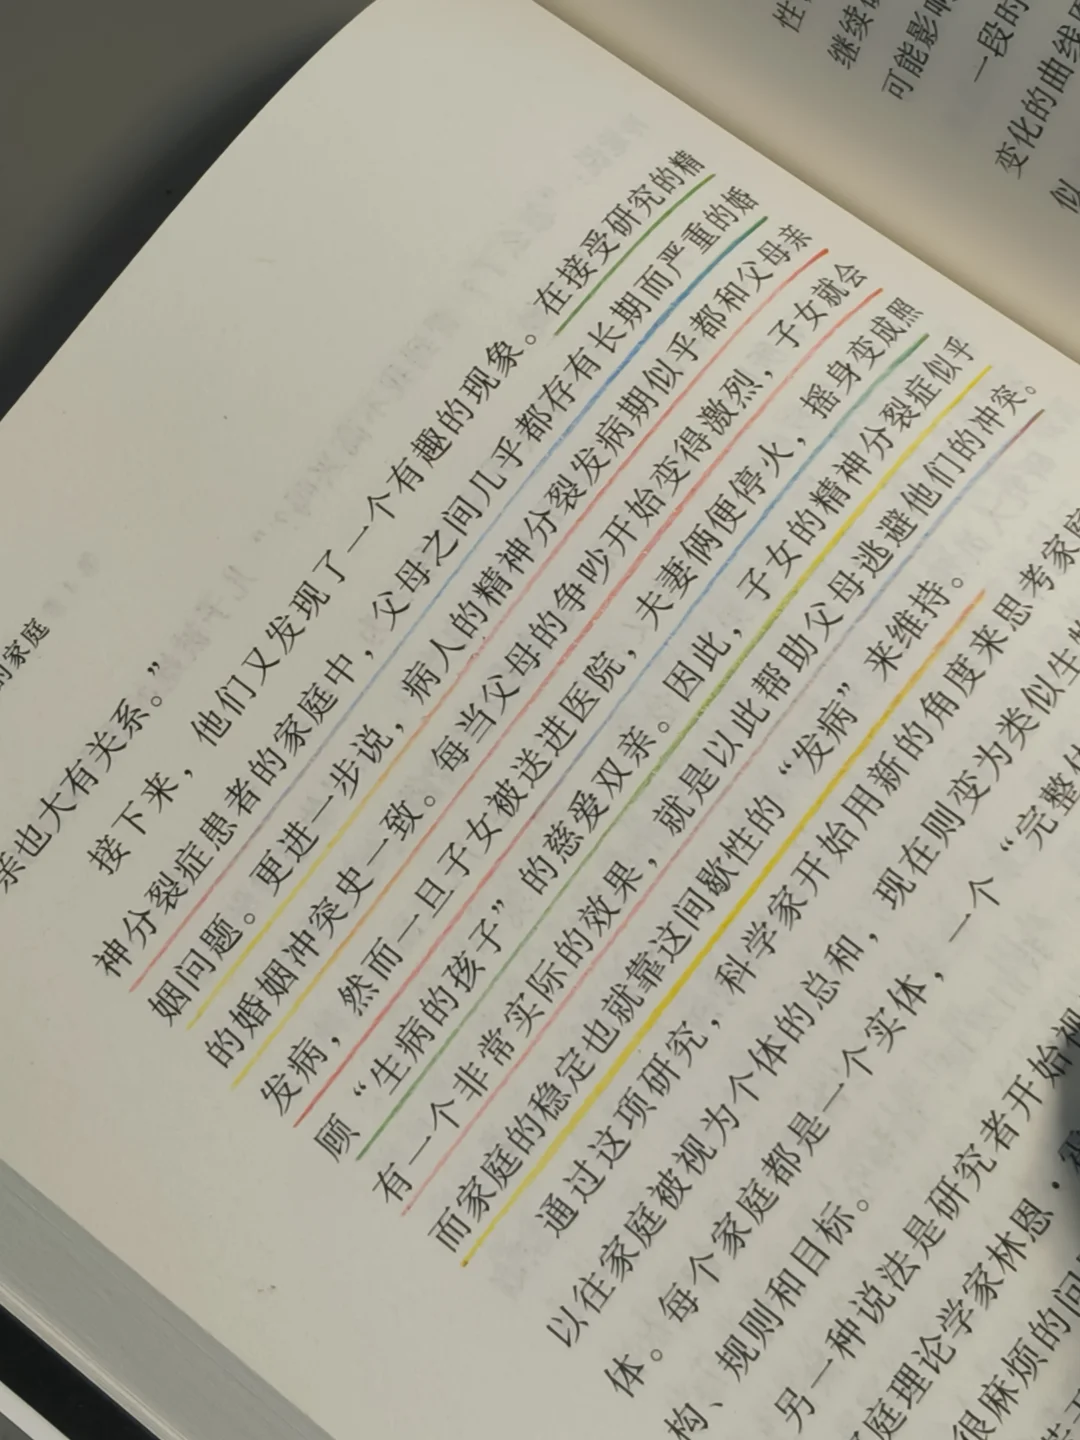 性
继续
可能影响
一段时
变化的曲线
似
的家庭
亲也大有关系。”
接下来，他们又发现了一个有趣的现象。在接受研究的精
神分裂症患者的家庭中，父母之间几乎都存有长期而严重的婚
姻问题。更进一步说，病人的精神分裂发病期似乎都和父母亲
的婚姻冲突史一致。每当父母的争吵开始变得激烈，子女就会
发病，然而一旦子女被送进医院，夫妻俩便停火，摇身变成照
顾“生病的孩子”的慈爱双亲。因此，子女的精神分裂症似乎
有一个非常实际的效果，就是以此帮助父母逃避他们的冲突。
而家庭的稳定也就靠这间歇性的“发病”来维持。
通过这项研究，科学家开始用新的角度来思考家庭
以往家庭被视为个体的总和，现在则变为类似生
体。每个家庭都是一个实体，一个“完整
构、规则和目标。
另一种说法是研究者开始
庭理论学家林恩·霍
很麻烦的问